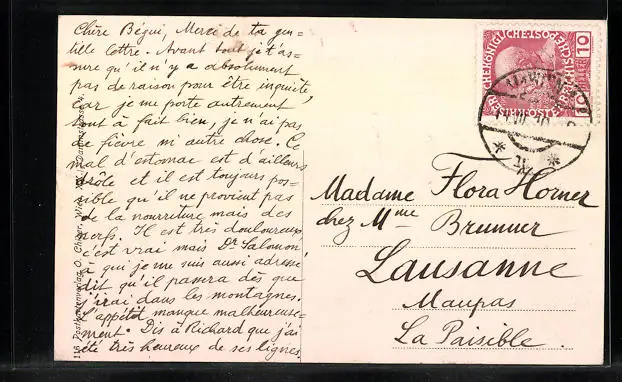 Chère Bégui, Merci de ta gen=
tille lettre. Avant tout je t'as=
sure qu'il n'y a absolument
pas de raison pour être inquiète,
car je me porte autrement
tout à fait bien, je n'ai pas
de fièvre ni autre chose. Ce
mal d'estomac est d'ailleurs
drôle et il est toujours pos=
sible qu'il ne provient pas
de la nourriture mais des
nerfs. Il est très douloureux
c'est vrai mais Dr. Salomon
à qui je me suis aussi adressé
dit qu'il passera dès que
j'irai dans les montagnes.
L'appétit manque malheureuse=
ment. Dis à Richard que j'ai
été très heureux de ses lignes.
Madame Flora Horner
chez Mme Brunner
Lausanne
Maupas
La Paisible.
10